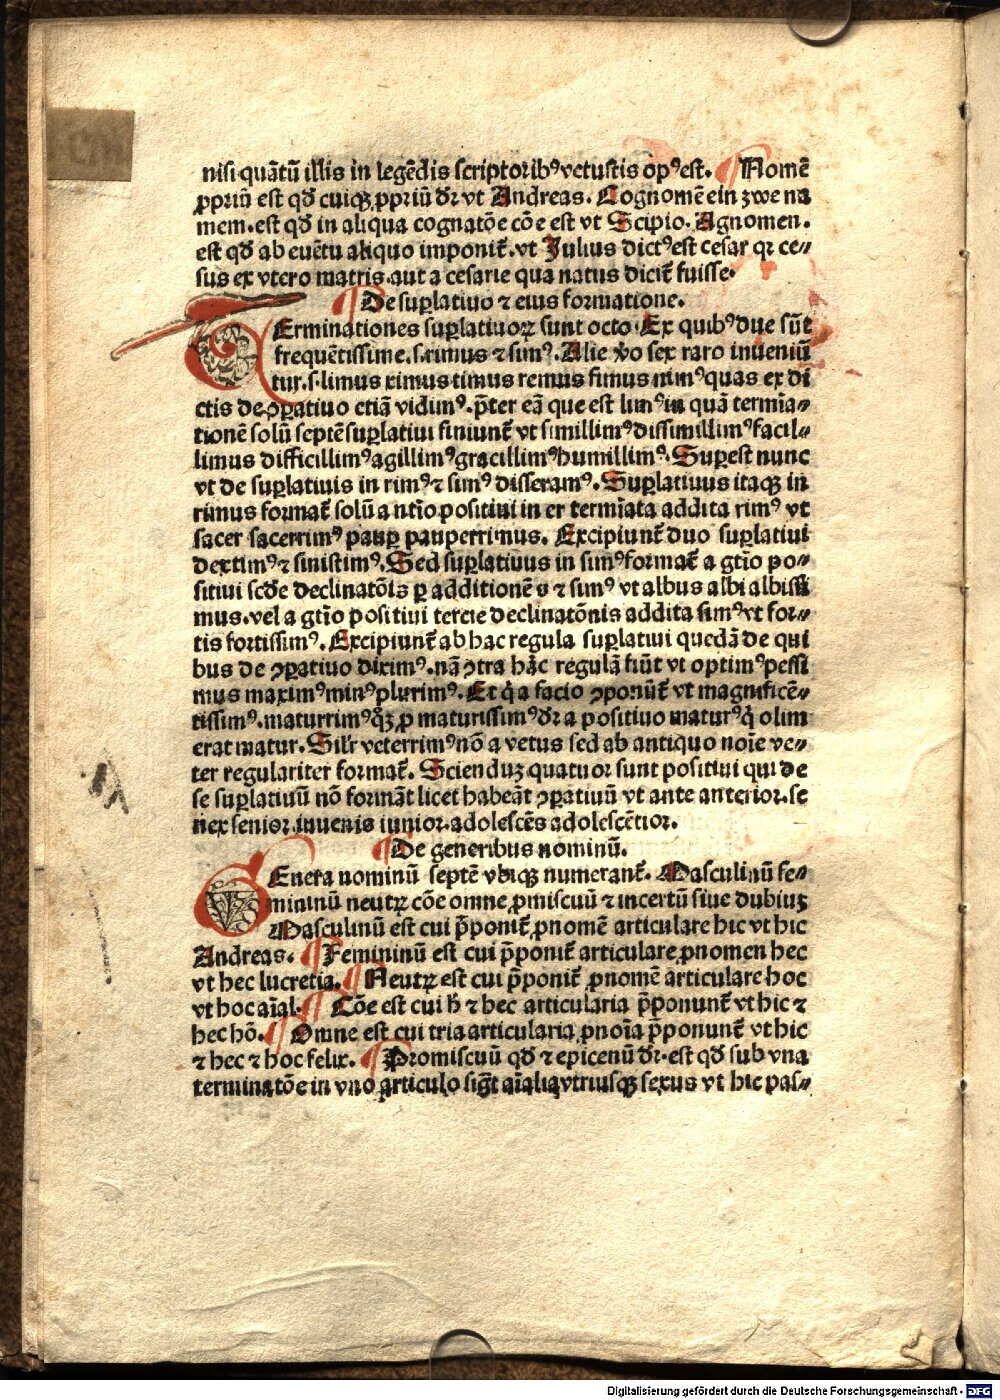 nisi quātū illis in legēdis scriptoribꝰ vetustis opꝰ est. Nomē
ꝓpriū est qđ cuiqꝫ ꝓpriū dr̄ vt Andreas. Cognomē ein zwe na
mem. est qđ in aliqua cognatōe cōe est vt Scipio. Agnomen.
est qđ ab euētu aliquo imponit̄. vt Julius dictꝰ est cesar qꝛ ce⸗
sus ex vtero matris aut a cesarie qua natus dicit̄ fuisse.
De suꝑlatiuo ⁊ eius formatione.
TErminationes suꝑlatiuoꝝ sunt octo. Ex quibꝰ due sūt
frequētissime. s. rimus ⁊ simꝰ. Alie v̄o sex raro inueniū
tur. s. limus ximus timus remus fimus nimꝰ quas ex di
ctis de ꝯꝑatiuo etiā vidimꝰ. p̄ter eā que est limꝰ in quā termia⸗
tionē solū septē suꝑlatiui finiunt̄ vt simillimꝰ dissimillimꝰ facil⸗
limus difficillimꝰ agillimꝰ gracillimꝰ humillimꝰ. Suꝑest nunc
vt de suꝑlatiuis in rimꝰ ⁊ simꝰ disseramꝰ. Suꝑlatiuus itaqꝫ in
rimus format̄ solū a ntīo positiui in er termiāta addita rimꝰ vt
sacer sacerrimꝰ pauꝑ pauperrimus. Excipiunt̄ duo suꝑlatiui
dextimꝰ ⁊ sinistimꝰ. Sed suꝑlatiuus in simꝰ format̄ a gtīo po⸗
sitiui scđe declinatōis ꝑ additionē s ⁊ simꝰ vt albus albi albissi
mus. vel a gtīo positiui tercie declinatōnis addita simꝰ vt for⸗
tis fortissimꝰ. Excipiunt̄ ab hac regula suꝑlatiui quedā de qui
bus de ꝯꝑatiuo diximꝰ. nā ꝯtra hāc regulā fiūt vt optimꝰ pessi
mus maximꝰ minꝰ plurimꝰ. Et q̄ a facio ꝯponūt̄ vt magnificē⸗
tissimꝰ. maturrimꝰ qꝫ ꝓ maturissimꝰ dr̄ a positiuo maturꝰ q̄ olim
erat matur. Silr̄ veterrimꝰ nō a vetus sed ab antiquo noīe ve⸗
ter regulariter format̄. Scienduꝫ quatuor sunt positiui qui de
se suꝑlatiuū nō formāt licet habeāt ꝯꝑatiuū vt ante anterior. se
nex senior. iuuenis iunior. adolescēs adolescētior.
De generibus nominū.
GEnera nominū septē vbiqꝫ numerant̄. Masculinū fe⸗
mininū neutꝝ cōe omne ꝓmiscuū ⁊ incertū siue dubiuꝫ
Masculinū est cui p̄ponit̄ ꝓnomē articulare hic vt hic
Andreas. Femininū est cui p̄ponit̄ articulare ꝓnomen hec
vt hec lucretia. Neutꝝ est cui p̄ponit̄ ꝓnomē articulare hoc
vt hoc aīal. Cōe est cui h̄ ⁊ hec articularia p̄ponunt̄ vt hic ⁊
hec hō. Omne est cui tria articularia ꝓnoīa p̄ponunt̄ vt hic
⁊ hec ⁊ hoc felix. Promiscuū qđ ⁊ epicenū dr̄. est qđ sub vna
terminatōe in vno articulo sigt̄ aīalia vtriusqꝫ sexus vt hic pas⸗
Digitalisierung gefördert durch die Deutsche Forschungsgemeinschaft - DFG